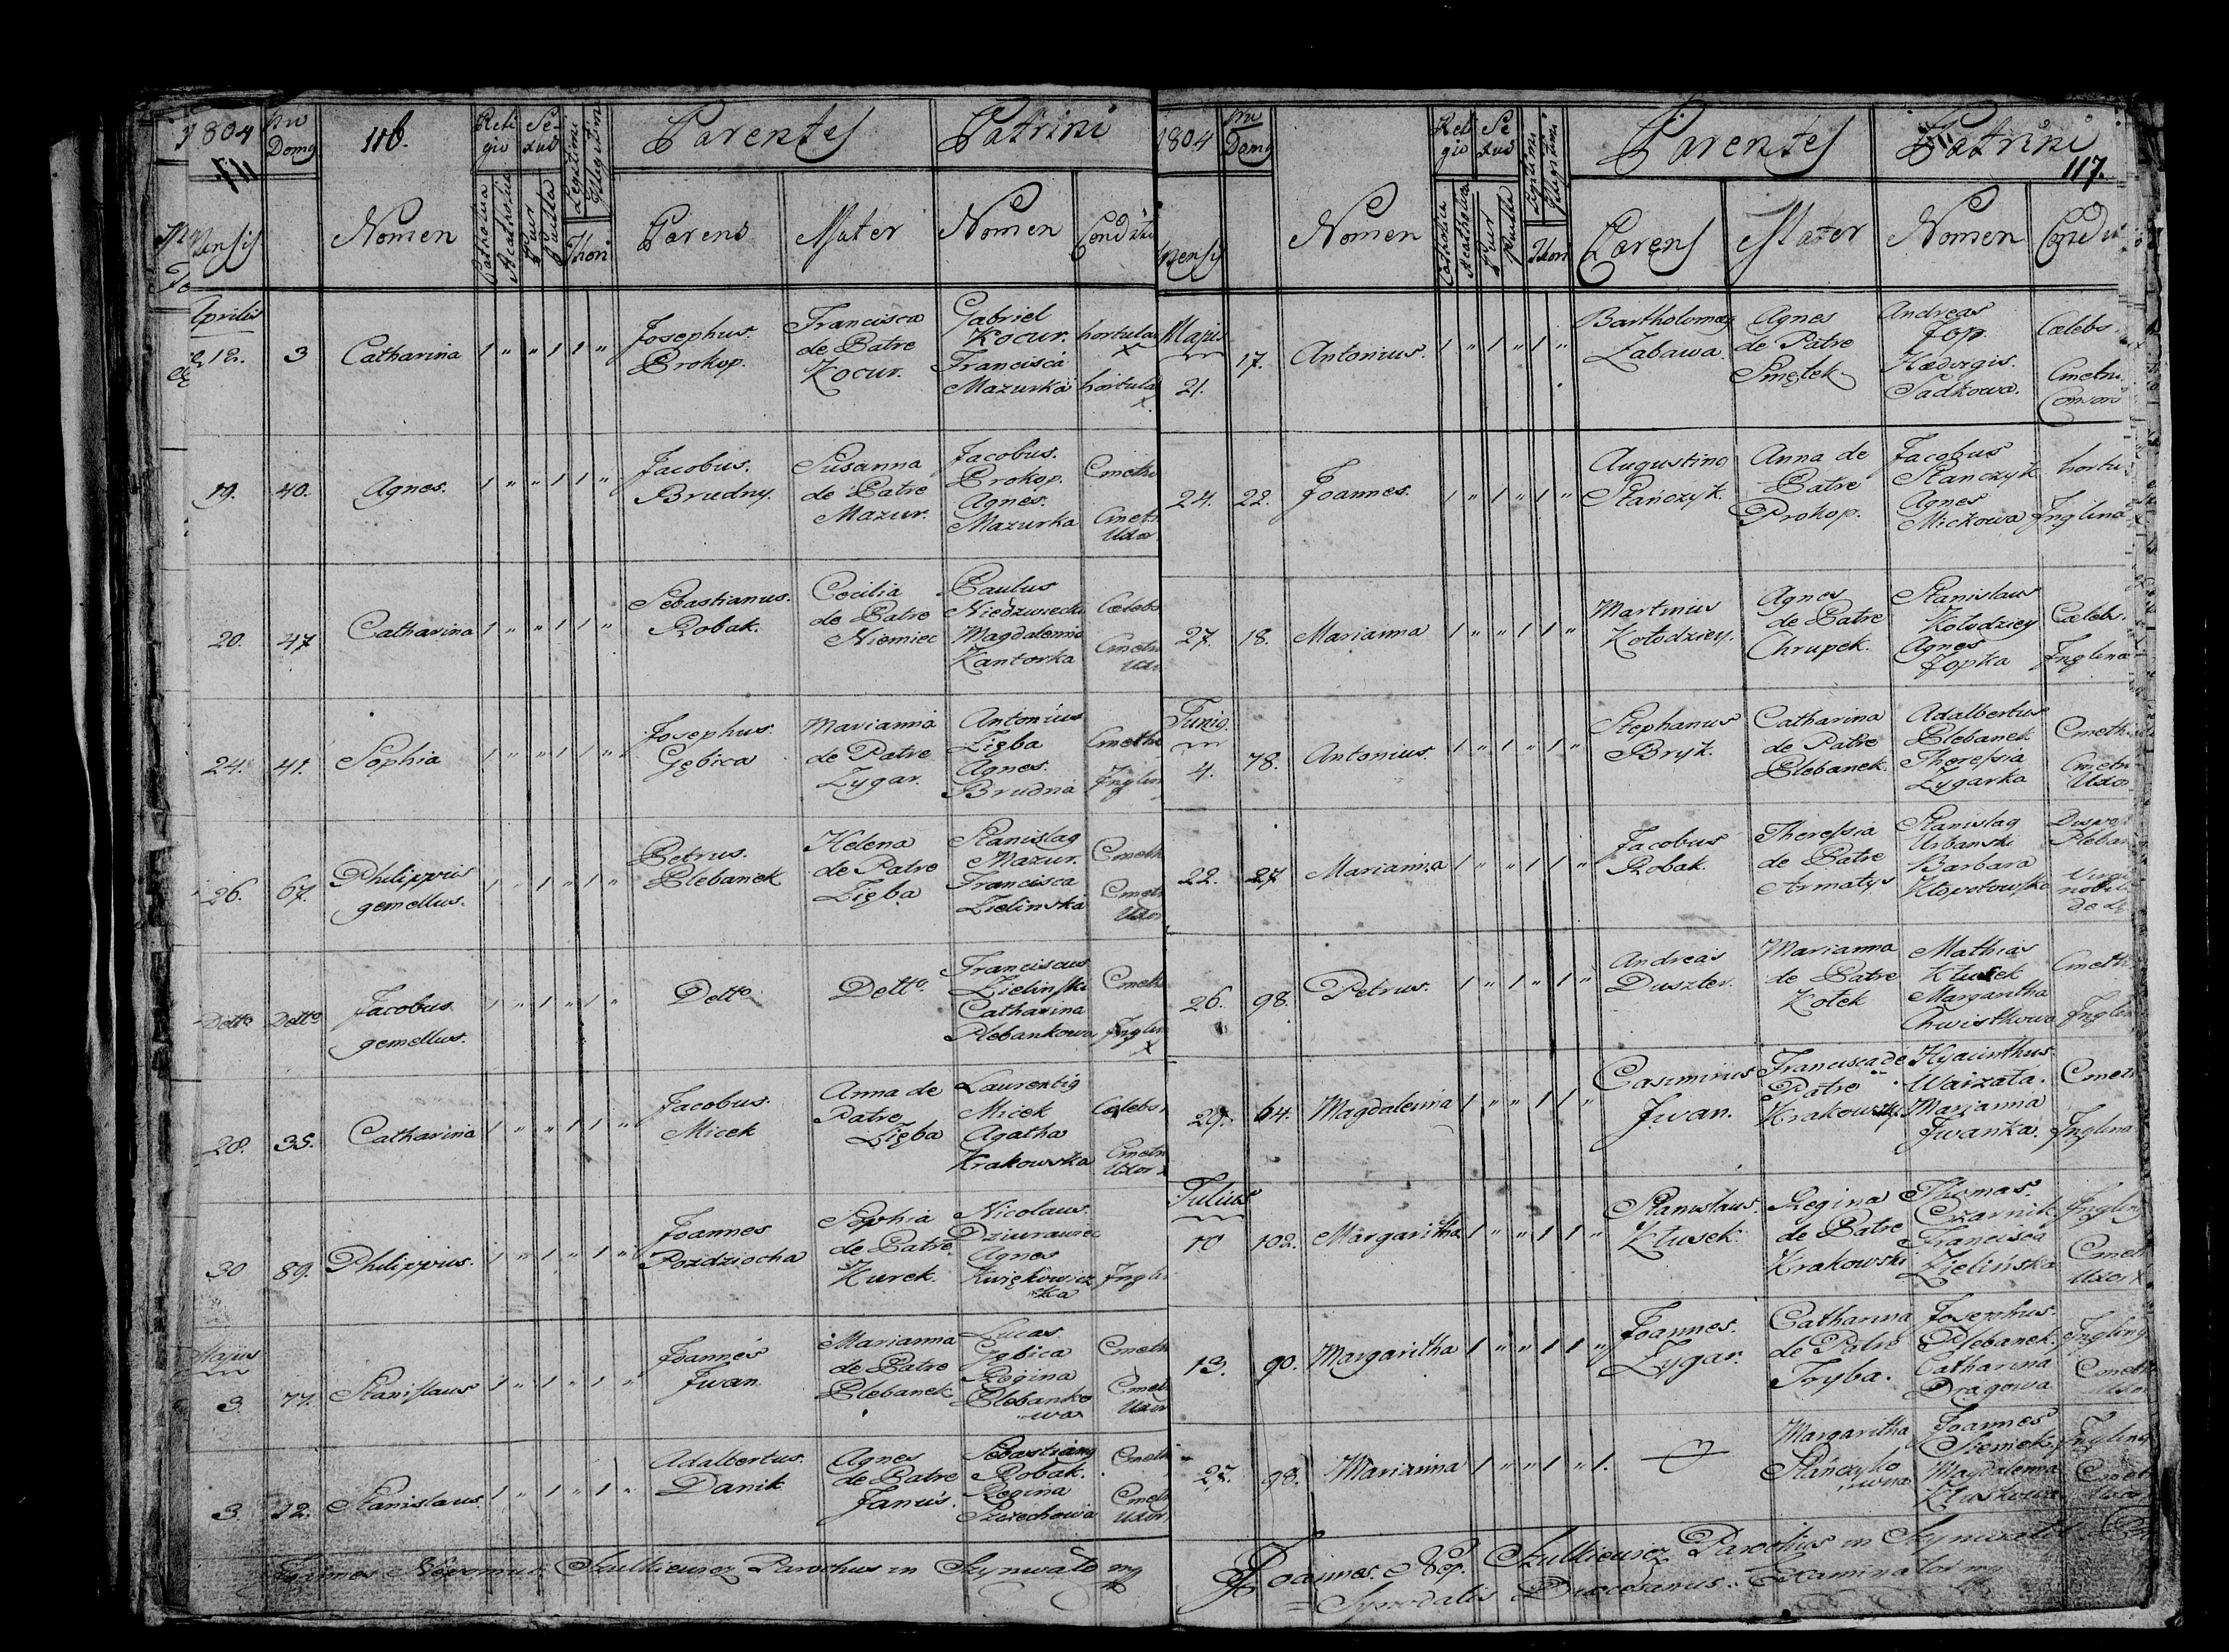 1804 Nro Domq 116. Reli gio Se xus Legitimi Illegitimi Parentes Patrini
Mensis Nomen Catholica Acatholica Puer Puella Thori Parens Mater Nomen Conditio
Aprilis
12. 3 Catharina 1 " " 1 1 " Josephus. Prokop. Francisca de Patre Kocur. Gabriel Kocur. Francisca Mazurka hortula x hortula x
19. 40. Agnes. 1 " " 1 1 " Jacobus. Brudny. Susanna de Patre Mazur. Jacobus. Prokop. Agnes. Mazurka Cmetho Cmet. Uxor
20. 47 Catharina 1 " " 1 1 " Sebastianus. Robak. Cecilia de Patre Niemiec Paulus Niedzwiecki Magdalenna Kantorka Cælebs Cmetho Uxor
24. 41. Sophia 1 " " 1 1 " Josephus. Gębica Marianna de Patre Zygar. Antonius Zięba Agnes. Brudna Cmetho Inglin
26. 67. Philippus gemellus. 1 " 1 " 1 " Petrus. Plebanek Helena de Patre Zięba Stanislaq Mazur. Francisca Zielinska Cmeth Cmeth Uxor
Detto Detto Jacobus gemellus. 1 " 1 " 1 " Detto Detto Franciscus Zielinski Catharina Plebankowa Cmeth Inglin x
28. 35. Catharina 1 " " 1 1 " Jacobus. Micek Anna de Patre Zięba Laurentiq Micek Agatha Krakowska Cælebs Cmetho Uxor x
30 89. Philippus. 1 " 1 " 1 " Joannes Pozdziocha Sophia de Patre Kurek. Nicolaus. Dziurawiec Agnes Kwiękowicz ka Inglin
Majus
3. 77. Stanislaus 1 " 1 " 1 " Joannes Iwan. Marianna de Patre Plebanek Lucas Gębica Regina Plebanko wa Cmeth Cmet Uxor
3. 12. Stanislaus. 1 " 1 " 1 " Adalbertus. Danik Agnes de Patre Janus. Sebastianq Robak. Regina Cmeth Cmeth Uxor
Joannes Nepomuc. Szulkiewicz Parochus in Szynwałd mp

1804 Nro Domq Reli gio Se xus Legitimi Illegitimi Parentes Patrini
117.
Mensis Nomen Catholica Acatholica Puer Puella Thori Parens Mater Nomen Condit
Majus
21. 17. Antonius. 1 " 1 " 1 " Bartholomæq Zabawa. Agnes de Patre Smętek Andreas Jop. Hedvigis. Sadkowa. Cælebs. Cmetho Consors
24. 22. Joannes. 1 " 1 " 1 " Augustinq Stanczyk. Anna de Patre Prokop. Jacobus Stanczyk Agnes Mickowa hortu Inglina
27. 18. Marianna 1 " " 1 1 " Martinus Kołodziey. Agnes de Patre Chrupek. Stanislaus Kołodziey Agnes Jopka Cælebs. Inglina
Juniq.
4. 78. Antonius. 1 " 1 " 1 " Stephanus Bryk. Catharina de Patre Plebanek. Adalbertus Plebanek Theressia Zygarka Cmeth Cmeth Uxor
22. 27 Marianna 1 " " 1 1 " Jacobus Robak. Theressia de Patre Armatys Stanislaq Urbanski Barbara Kłopotowska Pleban Virgi nobil de
26. 98. Petrus. 1 " 1 " 1 " Andreas Duszter. Marianna de Patre Kołek Mathias Kłusek Margaritha Chwistkowa Cmeth Inglin
29. 64. Magdalenna 1 " " 1 1 " Casimirus Iwan. Francisca de Patre Krakowski Hyacinthus. Marianna Iwanka. Cmeth Inglina
Julius
10 102. Margaritha 1 " " 1 1 " Stanislaus. Kłusek. Regina de Patre Krakowski Thomas. Czarnik Francisca Zielińska Inglinq Cmeth Uxor x
13. 90. Margaritha 1 " " 1 1 " Joannes. Zygar. Catharina de Patre Tryba. Josephus. Plebanek. Catharina Dragowa Inglinq Cmeth Uxor
27. 98. Marianna 1 " " 1 " 1. Margaritha Stańczyko wna Joannes Magdalenna Kłuskowa. Inglinq Cmeth Uxor
Joannes. Nep. Szulkiewicz Parochus in Szynwałd
Synodalis Diœcesanus Examinator mp